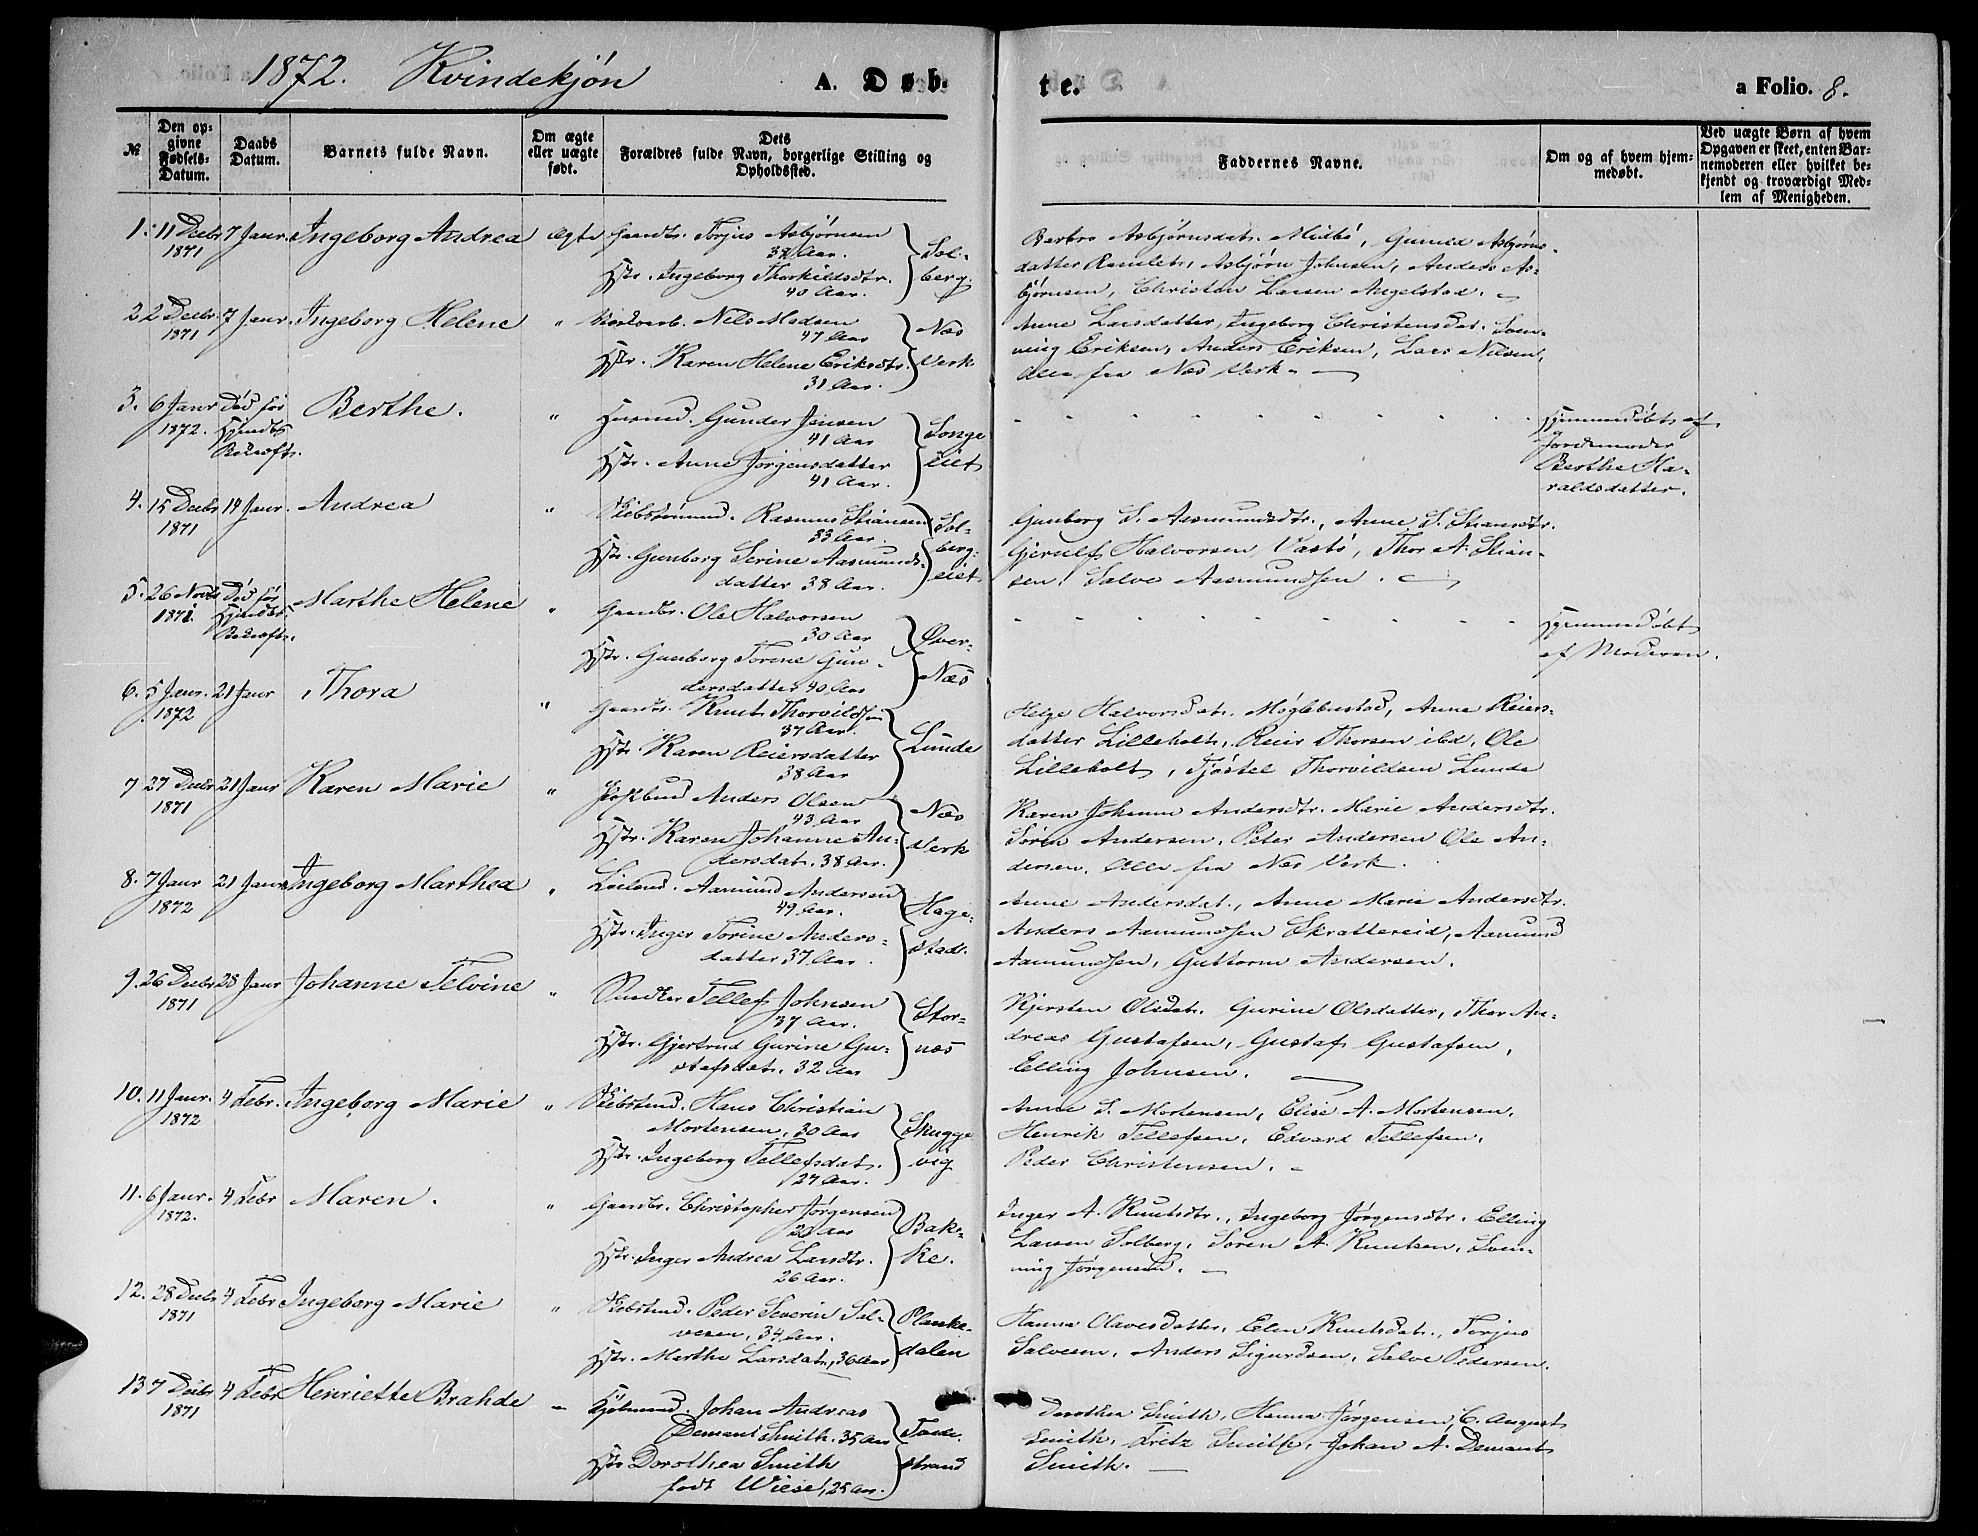 1872. Kvindekjøn
A. Døb-
te.
a Folio. 8.
№
Den op-
givne
Fødsels-
Datum.
Daabs
Datum.
Barnets fulde Navn.
Om ægte
eller uægte
født.
Dets
Forældres fulde Navn, borgerlige Stilling og
Opholdssted.
Faddernes Navne.
Om og af hvem hjem-
medøbt.
Ved uægte Børn af hvem
Opgaven er skeet, enten Bar-
nemoderen eller hvilket be-
kjendt og troværdigt Med-
lem af Menigheden.
1. 11 Decbr 7 Janr. Ingeborg Andrea ægte Gaardbr. Torjus Asbjørnsen
1871
Aar.
Hstr. Ingeborg Thorkildsdtr.
40 Aar.
Sol-
berg.
Barbro Asbjørnsdatr. Midbø, Gunild Asbjørns-
datter Asbjørn Johnsen, Anders As-
bjørnsen, Christen Larsen Angelstad.
2 2 Decbr. 7 Janr. Ingeborg Helene " Nils Madsen
1871
47 Aar
Hstr. Karen Helene Eriksdtr.
31 Aar.
Næs
Verk
Anne Larsdatter, Ingeborg Christensdat. Sven-
ning Eriksen, Anders Eriksen, Lars Nilsen,
Alle fra Næs Verk.
3. 6 Janr Død før Berthe. " Husmd. Gunder Jensen
1872. Hjemdbs
Bekræft.
41 Aar
Hstr. Anne Jørgensdatter
41 Aar.
Songe
eiet
Hjemmedøbt af
Jordemoder
Berthe Ha-
raldsdatter.
4. 15 Decbr 14 Janr. Andrea " Skibstømmd. Rasmus Stiansen
1871
33 Aar.
Hstr. Gunborg Serine Aasmunds-
datter 38 Aar.
Sol-
berg-
eiet
Gunborg S. Aasmundsdtr., Anne S. Stiansdtr.
Gjerulf Halvorsen Vasbø, Thor A. Stian-
sen, Salve Aasmundsen.
5. 26 Novbr Død før Marthe Helene " Gaardbr. Ole Halvorsen
1871. Hjemdbs
Bekræft.
30 Aar
Hstr. Gunborg Torine Gun-
dersdatter 40 Aar
Over-
Næs
Hjemmedøbt
af Moderen.
6. 5 Janr. 21 Janr Thora " Gaardbr. Knut Thorvildsen
1872
37 Aar.
Hstr. Karen Reiersdatter
38 Aar
Lunde
Helge Halvorsdatr. Møglebustad, Anne Reiers-
datter Lilleholt, Reier Thorsen ibd, Ole
Lilleholt, Tjøstel Thorvildsen Lunde
7 27 Decbr 21 Janr Karen Marie " Anders Olsen
1871
43 Aar
Hstr. Karen Johanne An-
dersdatr. 38 Aar.
Næs
Verk
Karen Johanne Andersdtr. Marie Andersdtr.
Søren Andersen, Peter Andersen Ole An-
dersen, Alle fra Næs Verk.
8. 7 Janr 21 Janr Ingeborg Marthea " Aamund Andersen
1872
49 Aar.
Hstr. Inger Torine Anders-
datter 37 Aar.
Hage-
stad.
Anne Andersdat., Anne Marie Andersdtr.
Anders Aamundsen Skrattereid, Aamund
Aamundsen, Guttorm Andersen.
9. 26 Decbr 28 Janr Johanne Telvine " Snedker Tellef Johnsen
1871
37 Aar.
Hstr. Gjertrud Gurine Gu-
stafsdat. 32 Aar
Stor-
næs
Kjersten Olsdat. Gurine Olsdatter, Thor An-
dreas Gustafsen, Gustaf Gustafsen,
Elling Johnsen.
10. 11 Janr. 4 Febr. Ingeborg Marie " Skibstmd. Hans Christian
1872
Mortensen, 30 Aar
Hstr. Ingeborg Tellefsdat.
27 Aar.
Skugge
vig
Anne S. Mortensen, Elise A. Mortensen,
Henrik Tellefsen, Edvard Tellefsen,
Peder Christensen.
11. 6 Janr. 4 Febr Maren. " Gaardbr. Christopher Jørgensen
1872.
Aar
Hstr. Inger Andrea Larsdtr.
26 Aar.
Bak-
ke.
Inger A. Knutsdtr., Ingeborg Jørgensdtr. Elling
Larsen Solberg, Søren A. Knutsen, Sven-
ning Jørgensen.
12. 28 Decbr 4 Febr Ingeborg Marie " Skibstmd. Peder Severin Sal-
1871
vesen, 34 Aar.
Hstr. Marthe Larsdat., 36 Aar
Planke-
dalen
Hanna Olavesdatter, Elen Knutsdat., Torjus
Salvesen, Anders Sigurdsen, Salve Pedersen.
13 7 Decbr 4 Febr Henriette Brahde " Kjøbmand. Johan Andreas
1871
Demant Smith. 35 Aar
Hstr Dorothea Smith
født Wiese, 25 Aar.
Tvede-
strand
Dorothea Smith, Hanna Jørgensen, C. August
Smith, Fritz Smith, Johan A. Demant
Smith.